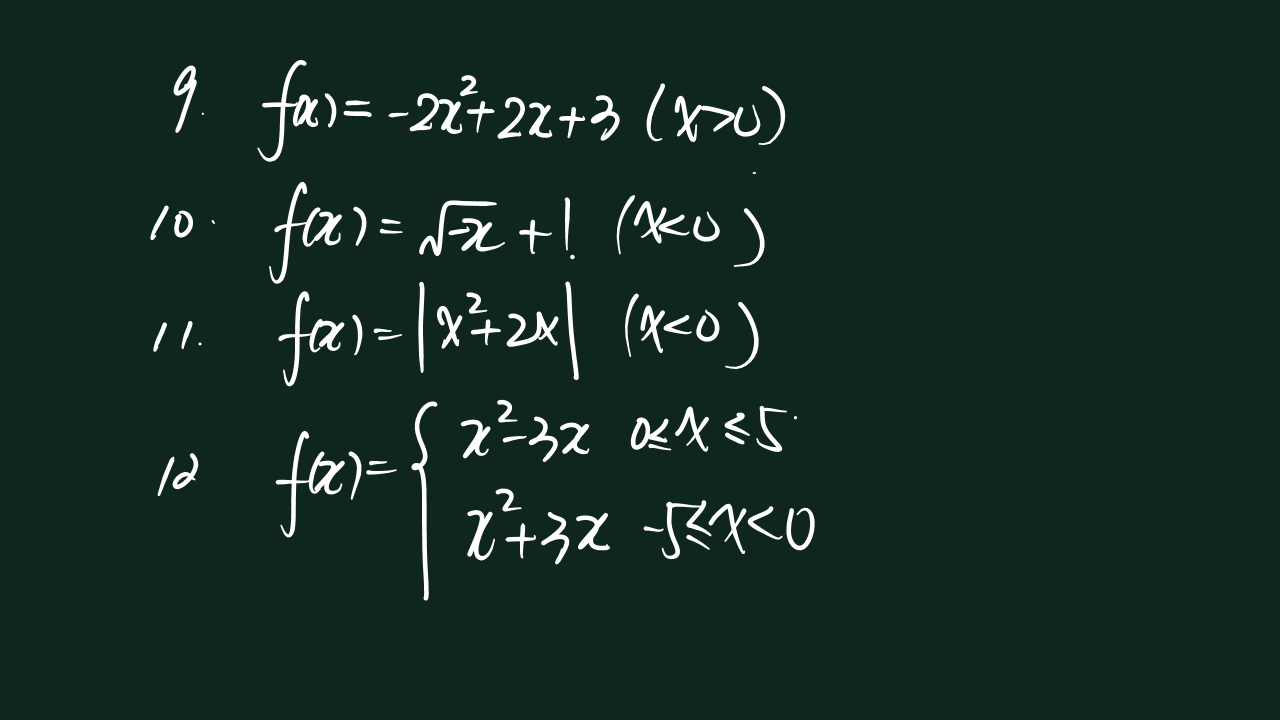 9. f(x) = -2x²+2x+3 (x>0)
10. f(x) = √-x + 1 (x<0)
11. f(x) = |x²+2x| (x<0)
12 f(x) = { x²-3x 0≤x≤5
x²+3x -5≤x<0